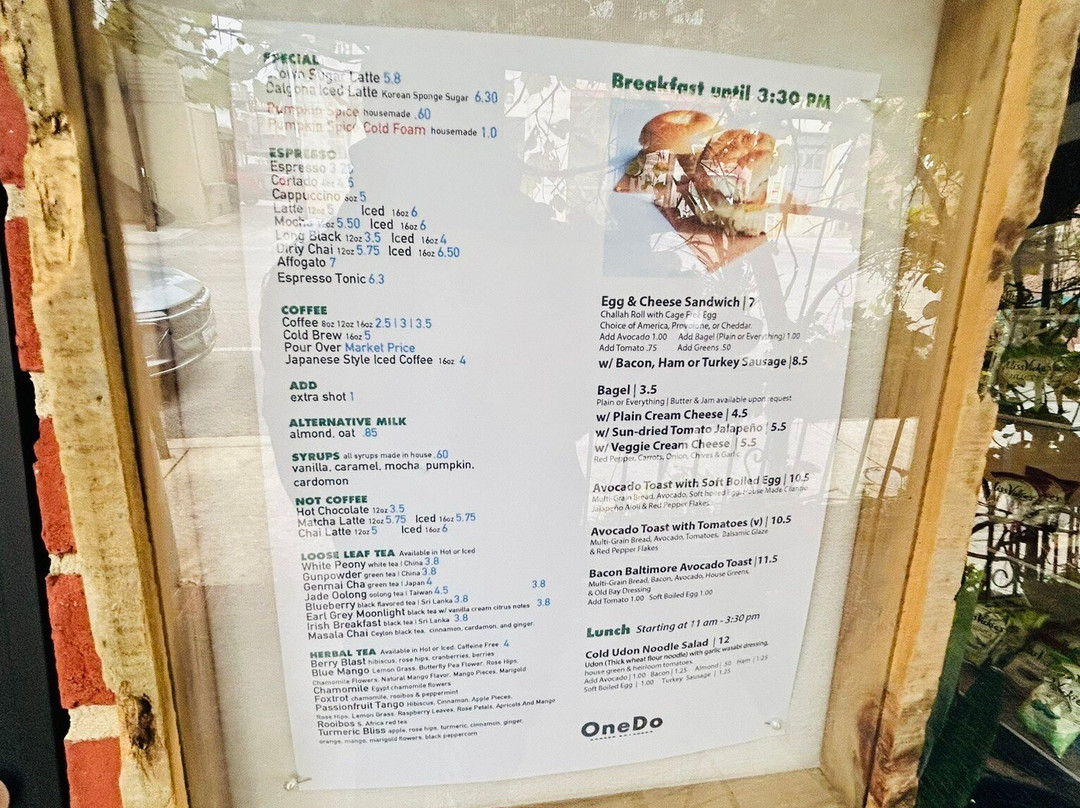 SPECIAL
Sugar Latte 5.8
Dalgona Iced Latte Korean Sponge Sugar 6.30
Pumpkin Spice housemade .60
Pumpkin Spice Cold Foam housemade 1.0
ESPRESSO
Espresso 3.25
Cortado 4oz 5
Cappuccino 6oz 5
Latte 12oz 5 Iced 16oz 6
Mocha 12oz 5.50 Iced 16oz 6
Long Black 12oz 3.5 Iced 16oz 4
Dirty Chai 12oz 5.75 Iced 16oz 6.50
Affogato 7
Espresso Tonic 6.3
COFFEE
Coffee 8oz 12oz 16oz 2.5 | 3 | 3.5
Cold Brew 16oz 5
Pour Over Market Price
Japanese Style Iced Coffee 16oz 4
ADD
extra shot 1
ALTERNATIVE MILK
almond, oat .85
SYRUPS all syrups made in house .60
vanilla, caramel, mocha, pumpkin,
cardomon
NOT COFFEE
Hot Chocolate 12oz 3.5
Matcha Latte 12oz 5.75 Iced 16oz 5.75
Chai Latte 12oz 5 Iced 16oz 6
LOOSE LEAF TEA Available in Hot or Iced
White Peony white tea | China 3.8
Gunpowder green tea | China 3.8
Genmai Cha green tea | Japan 4
Jade Oolong oolong tea | Taiwan 4.5
Blueberry black flavored tea | Sri Lanka 3.8
3.8
Earl Grey Moonlight black tea w/ vanilla cream citrus notes 3.8
Irish Breakfast black tea | Sri Lanka 3.8
Masala Chai Ceylon black tea, cinnamon, cardamon, and ginger.
HERBAL TEA Available in Hot or Iced, Caffeine Free 4
Berry Blast hibiscus, rose hips, cranberries, berries
Blue Mango Lemon Grass, Butterfly Pea Flower, Rose Hips,
Chamomile Flowers, Natural Mango Flavor, Mango Pieces, Marigold
Chamomile Egypt chamomile flowers
Foxtrot chamomile, rooibos & peppermint
Passionfruit Tango Hibiscus, Cinnamon, Apple Pieces,
Rose Hips, Lemon Grass, Raspberry Leaves, Rose Petals, Apricots And Mango
Rooibos S. Africa red tea
Turmeric Bliss apple, rose hips, turmeric, cinnamon, ginger,
orange, mango, marigold flowers, black peppercorn
Breakfast until 3:30 PM
Egg & Cheese Sandwich | 7
Challah Roll with Cage Free Egg
Choice of America, Provolone, or Cheddar.
Add Avocado 1.00 Add Bagel (Plain or Everything) 1.00
Add Tomato .75 Add Greens .50
w/ Bacon, Ham or Turkey Sausage | 8.5
Bagel | 3.5
Plain or Everything | Butter & Jam available upon request
w/ Plain Cream Cheese | 4.5
w/ Sun-dried Tomato Jalapeño | 5.5
w/ Veggie Cream Cheese | 5.5
Red Pepper, Carrots, Onion, Chives & Garlic
Avocado Toast with Soft Boiled Egg | 10.5
Multi-Grain Bread, Avocado, Soft boiled Egg, House Made Cilantro
Jalapeño Aioli & Red Pepper Flakes
Avocado Toast with Tomatoes (v) | 10.5
Multi-Grain Bread, Avocado, Tomatoes, Balsamic Glaze
& Red Pepper Flakes
Bacon Baltimore Avocado Toast | 11.5
Multi-Grain Bread, Bacon, Avocado, House Greens,
& Old Bay Dressing
Add Tomato 1.00 Soft Boiled Egg 1.00
Lunch Starting at 11 am - 3:30 pm
Cold Udon Noodle Salad | 12
Udon (Thick wheat flour noodle) with garlic wasabi dressing,
house green & heirloom tomatoes.
Add Avocado | 1.00 Bacon | 1.25 Almond | .50 Ham | 1.25
Soft Boiled Egg | 1.00 Turkey Sausage | 1.25
OneDo
Miss Vickie's
Miss Vickie's